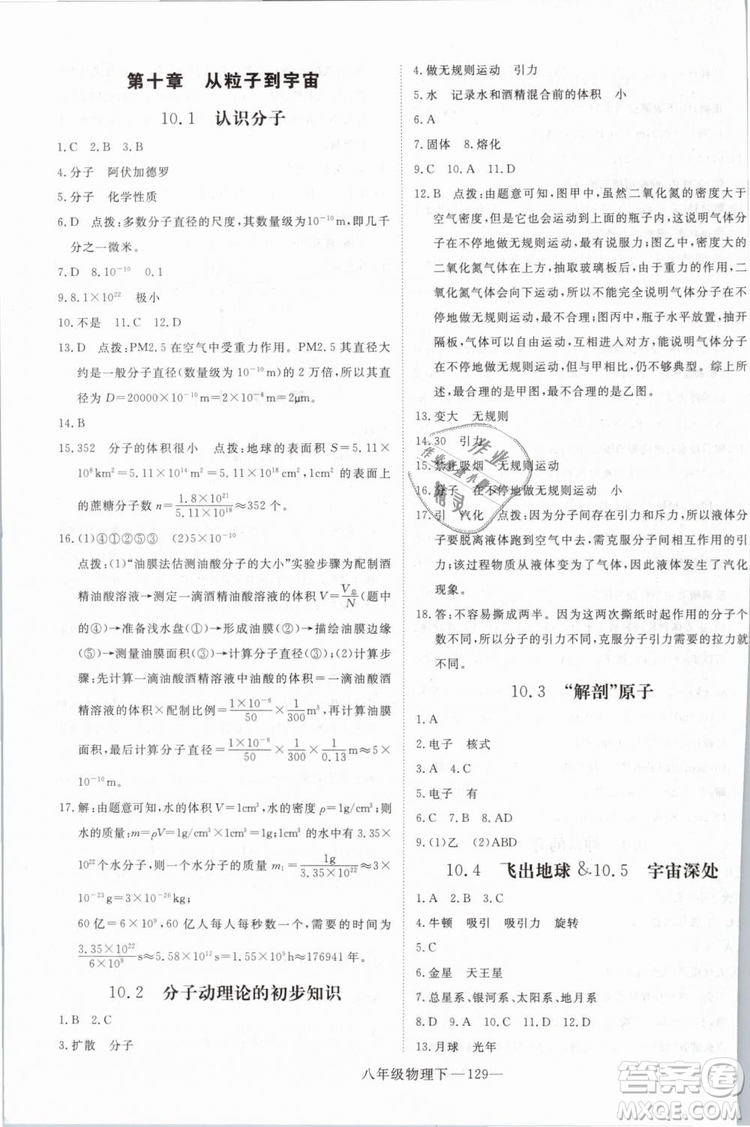 第十章 从粒子到宇宙
10.1 认识分子
1.C 2.B 3.B
4.分子 阿伏加德罗
5.分子 化学性质
6.D 点拨:多数分子直径的尺度,其数量级为10⁻¹⁰m,即几千
分之一微米。
7.D 8.10⁻¹⁰ 0.1
9.8.1×10²² 极小
10.不是 11.C 12.D
13.D 点拨:PM2.5在空气中受重力作用。PM2.5其直径大
约是一般分子直径(数量级为10⁻¹⁰m)的2万倍,所以其直
径为D=20000×10⁻¹⁰m=2×10⁻⁶m=2μm。
14.B
15.352 分子的体积很小 点拨:地球的表面积S=5.11×
10⁸km²=5.11×10¹⁴m²=5.11×10¹⁸cm²,1cm²上所占有
的蔗糖分子数=1.8×10²¹/5.11×10¹⁸≈352个。
16.(1)④①②⑤③
点拨:(1)“油膜法估测油酸分子的大小”实验步骤为配制酒
精油酸溶液→测定一滴酒精油酸溶液的体积V=V总/N(题中
的④)→准备浅水盘(①)→形成油膜(②)→描绘油膜边缘
(⑤)→测量油膜面积(③)→计算分子直径。(2)计算步
骤:先计算一滴油酸酒精溶液中油酸的体积=一滴油酸酒
精溶液的体积×配制比例=1×10⁻⁶/50×1/300m³,再计算油膜
面积,最后计算分子直径=1×10⁻⁶/50×1/300×1/0.0133m≈5×
10⁻¹⁰m。
17.解:由题意可知,水的体积V=1cm³,水的密度ρ=1g/cm³,
水的质量:m=ρV=1g/cm³×1cm³=1g
一个水分子的质量为m₁=1g/3.35×10²²≈2.99×
10⁻²³g=2.99×10⁻²⁶kg
60亿=6×10⁹,60亿人每人每秒数一个,需要的时间为
3.35×10²²/6×10⁹s≈5.58×10¹²s≈1.55×10⁹h≈176941年。
10.2 分子动理论的初步知识
1.B 2.C
3.扩散 分子
4.做无规则运动 引力
5.水 记录水和酒精混合前的体积 小
6.A
7.固体 8.熔化
9.C 10.A 11.D
12.B 点拨:由题意可知,图甲中,虽然二氧化氮的密度大于
空气密度,但仍会运动到上面的瓶子内,这说明气体分
子在不停地做无规则运动,较有说服力;图乙中,密度大的
二氧化氮气体在上方,抽取玻璃板后,由于重力的作用,二
氧化氮气体会向下运动,不能有力地说明气体分子在不
停地做无规则运动,最不合理;图丙中,瓶子水平放置,抽开
隔板,气体会相互进入对方,与甲相比,仍不够典型。综上所
述,最合理的是甲图,最不合理的是乙图。
13.变大 无规则
14.30 引力
15.禁止吸烟 无规则运动
16.分子 在不停地做无规则运动 小
17.引 汽化 点拨:因为分子间存在引力和斥力,所以液体分
子要脱离液体跑到空气中去,需克服分子间引力的作用做
功;该过程物质从液体变为了气体,所以发生的是汽化
现象。
18.答:不容易撕成两半。因为这两次撕纸时起作用的分子个
数不同,所以分子的引力不同,克服分子引力需要的拉力就
不同。
10.3 “解剖”原子
1.A
2.电子 核式
3.A 4.C
5.电子 有
6.C 7.B 8.AD
9.(1)乙 (2)ABD
10.4 飞出地球 &10.5 宇宙深处
1.A 2.B 3.C
4.牛顿 吸引 吸引力 旋转
5.C
6.金星 天王星
7.总星系、银河系、太阳系、地月系
8.D 9.D 10.D 11.A 12.D
13.月球 光年
八年级物理下—129—
作业
精灵
答案圈
MXQE.COM